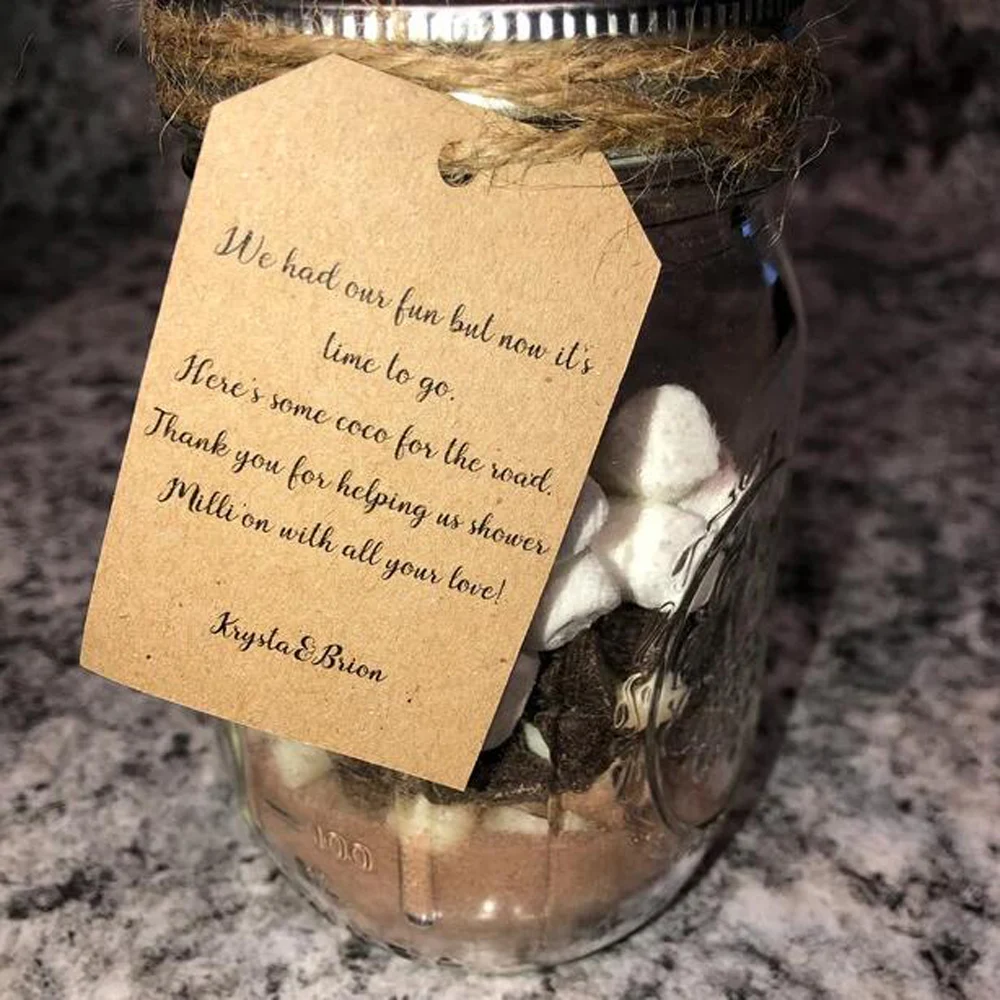 We had our fun but now it's
time to go.
Here's some coco for the road.
Thank you for helping us shower
Milli'on with all your love!
Krysta & Brion
100